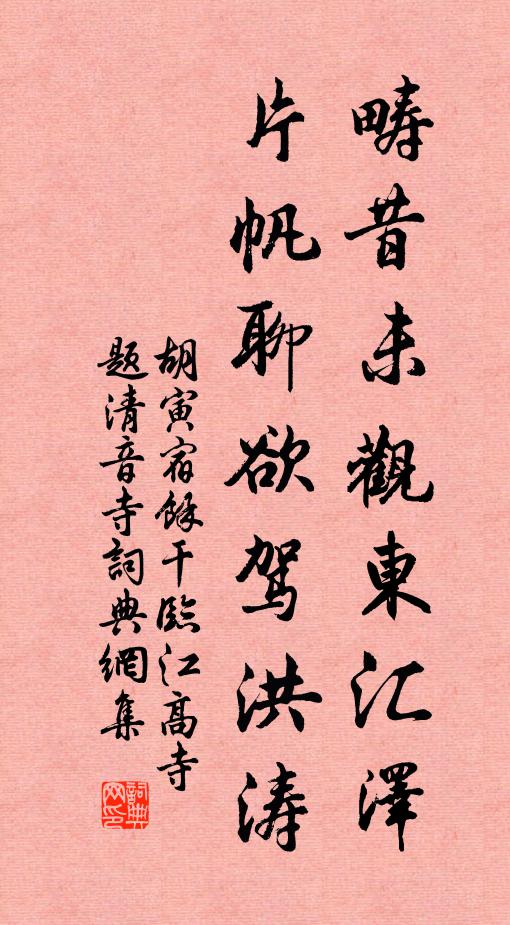 疇昔未觀東汇澤
片帆聊欲駕洪濤
胡寅宿餘干臨江高寺
題清音寺詞典網集
詞典网印